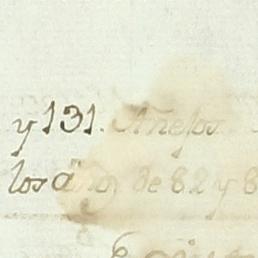 y 131. Añejos
los años de 82 y 8